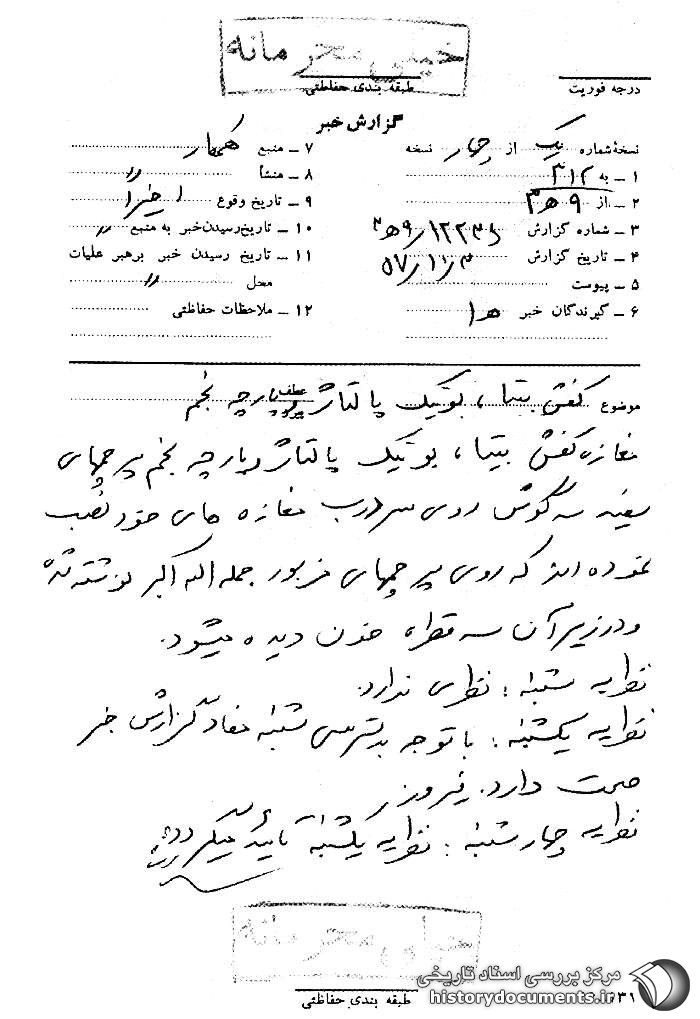 خیلی محرمانه
طبقه بندی حفاظتی
درجه فوریت
گزارش خبر
نسخهٔ شماره یک از چهار نسخه
۱ ــ به ۳۱۲
۲ ــ از ۹ ه‍ ۳
۳ ــ شماره گزارش
۴ ــ تاریخ گزارش ۵۷/۱۱/۳
۵ ــ پیوست
۶ ــ گیرندگان خبر ه‍ ۱
۷ ــ منبع همکار
۸ ــ منشأ 〃
۹ ــ تاریخ وقوع اخیرا
۱۰ ــ تاریخ رسیدن خبر به منبع 〃
۱۱ ــ تاریخ رسیدن خبر برهبر عملیات
محل 〃
۱۲ ــ ملاحظات حفاظتی
موضوع کفش بیتا ، بوتیک پالتاش پارچه نجم
مغازه کفش بیتا ، بوتیک پالتاش و پارچه نجم پرچمهای
سفید سه گوش روی سردرب مغازه های خود نصب
نموده اند که روی پرچمهای مزبور جمله الله اکبر نوشته شده
و در زیر آن سه قطره خون دیده میشود.
نظریه شنبه : نظری ندارد.
نظریه یکشنبه : با توجه بدسترسی شنبه مفاد گزارش خبر
صحت دارد. فیروز
نظریه چهارشنبه : نظریه یکشنبه تأیید میگردد
خیلی محرمانه
طبقه بندی حفاظتی
مرکز بررسی اسناد تاریخی
historydocuments.ir